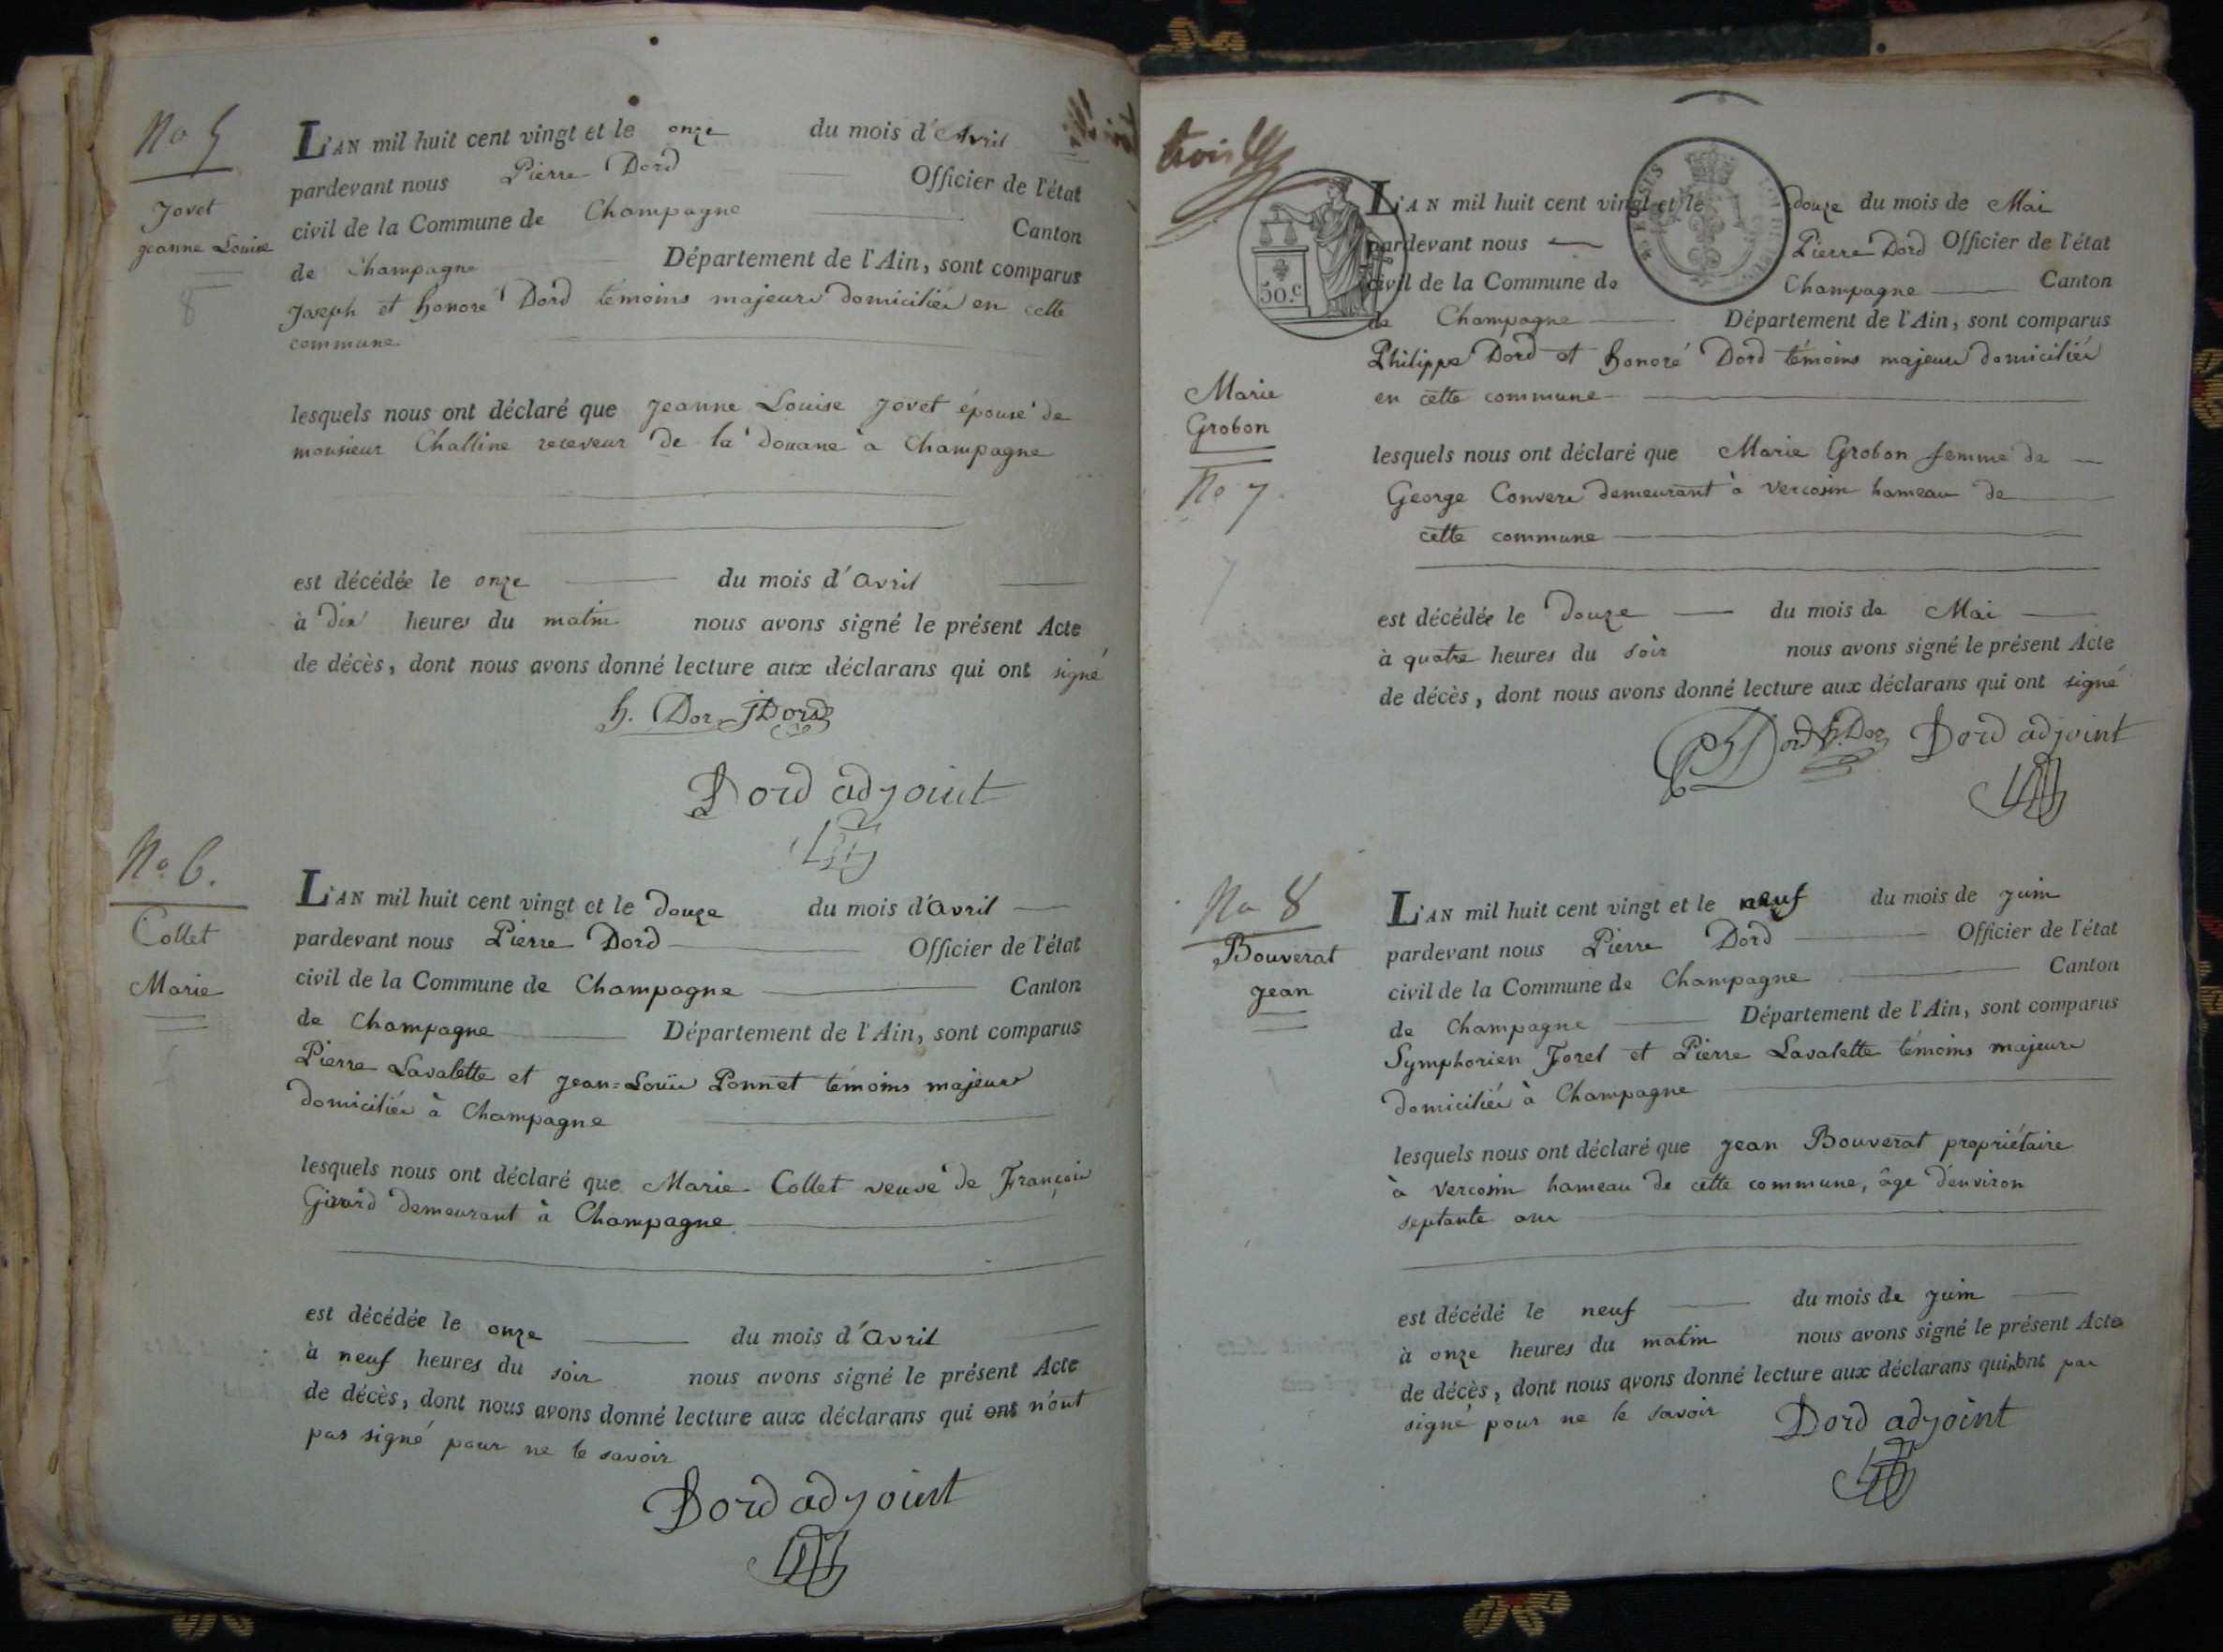 No 5
Jovet
jeanne Louise
8
L'AN mil huit cent vingt et le onze du mois d'Avril
pardevant nous Pierre Dord Officier de l'état
civil de la Commune de Champagne Canton
de Champagne Département de l'Ain, sont comparus
Joseph et honoré Dord témoins majeurs domiciliés en cette
commune
lesquels nous ont déclaré que jeanne Louise jovet épouse de
monsieur Challine receveur de la douane a Champagne
est décédée le onze du mois d'avril
à dix heures du matin nous avons signé le présent Acte
de décès, dont nous avons donné lecture aux déclarans qui ont signé
h. Dor JDord
Dord adjoint
No 6.
Collet
Marie
L'AN mil huit cent vingt et le douze du mois d'avril
pardevant nous Pierre Dord Officier de l'état
civil de la Commune de Champagne Canton
de Champagne Département de l'Ain, sont comparus
Pierre Lavalette et jean=Louis Ponnet témoins majeurs
domiciliés à Champagne
lesquels nous ont déclaré que Marie Collet veuve de François
Girard demeurant à Champagne
est décédée le onze du mois d'avril
à neuf heures du soir nous avons signé le présent Acte
de décès, dont nous avons donné lecture aux déclarans qui ont n'ont
pas signé pour ne le savoir
Dord adjoint
trois
50.c
Marie
Grobon
No 7.
7
L'AN mil huit cent vingt et le douze du mois de Mai
pardevant nous Pierre Dord Officier de l'état
civil de la Commune de Champagne Canton
de Champagne Département de l'Ain, sont comparus
Philippe Dord et honoré Dord témoins majeurs domiciliés
en cette commune
lesquels nous ont déclaré que Marie Grobon femme de
George Convers demeurant à vercosin hameau de
cette commune
est décédée le douze du mois de Mai
à quatre heures du soir nous avons signé le présent Acte
de décès, dont nous avons donné lecture aux déclarans qui ont signé
Dord h. Dor Dord adjoint
No 8
Bouverat
jean
L'AN mil huit cent vingt et le neuf du mois de juin
pardevant nous Pierre Dord Officier de l'état
civil de la Commune de Champagne Canton
de Champagne Département de l'Ain, sont comparus
Symphorien Forel et Pierre Lavalette témoins majeurs
domiciliés à Champagne
lesquels nous ont déclaré que jean Bouverat propriétaire
à vercosin hameau de cette commune, âge d'environ
septante ans
est décédé le neuf du mois de juin
à onze heures du matin nous avons signé le présent Acte
de décès, dont nous avons donné lecture aux déclarans qui n'ont pas
signé pour ne le savoir Dord adjoint